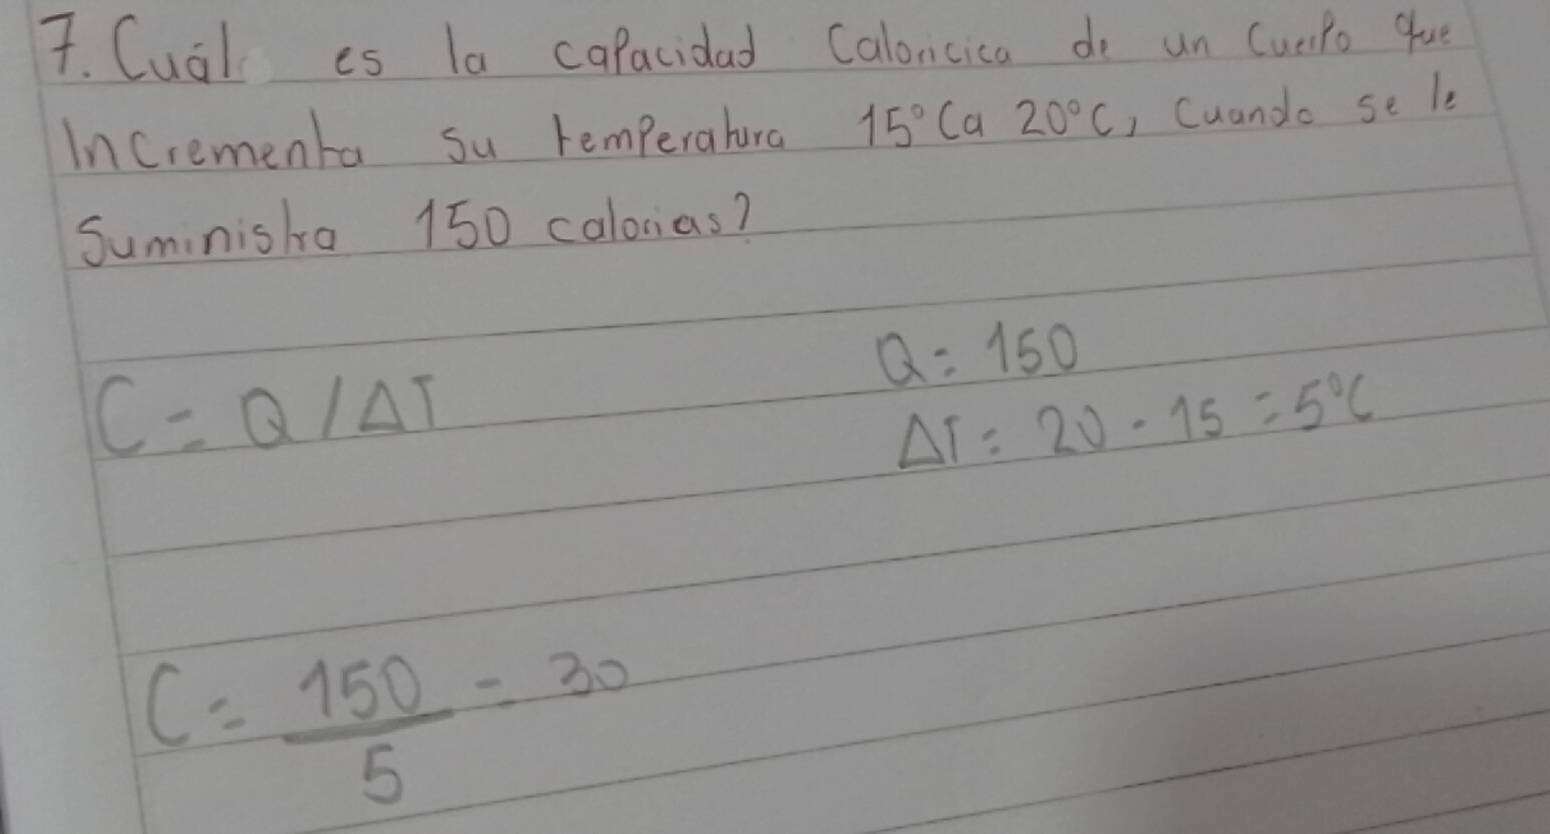 7. Cuál es la capacidad Caloricica de un Cuerpo que
Incrementa su temperatura 15°C a 20°C, Cuando se le
Suministra 150 calorias?
C = Q / ΔT
Q = 150
ΔT = 20 - 15 = 5°C
C = 150 = 30
5